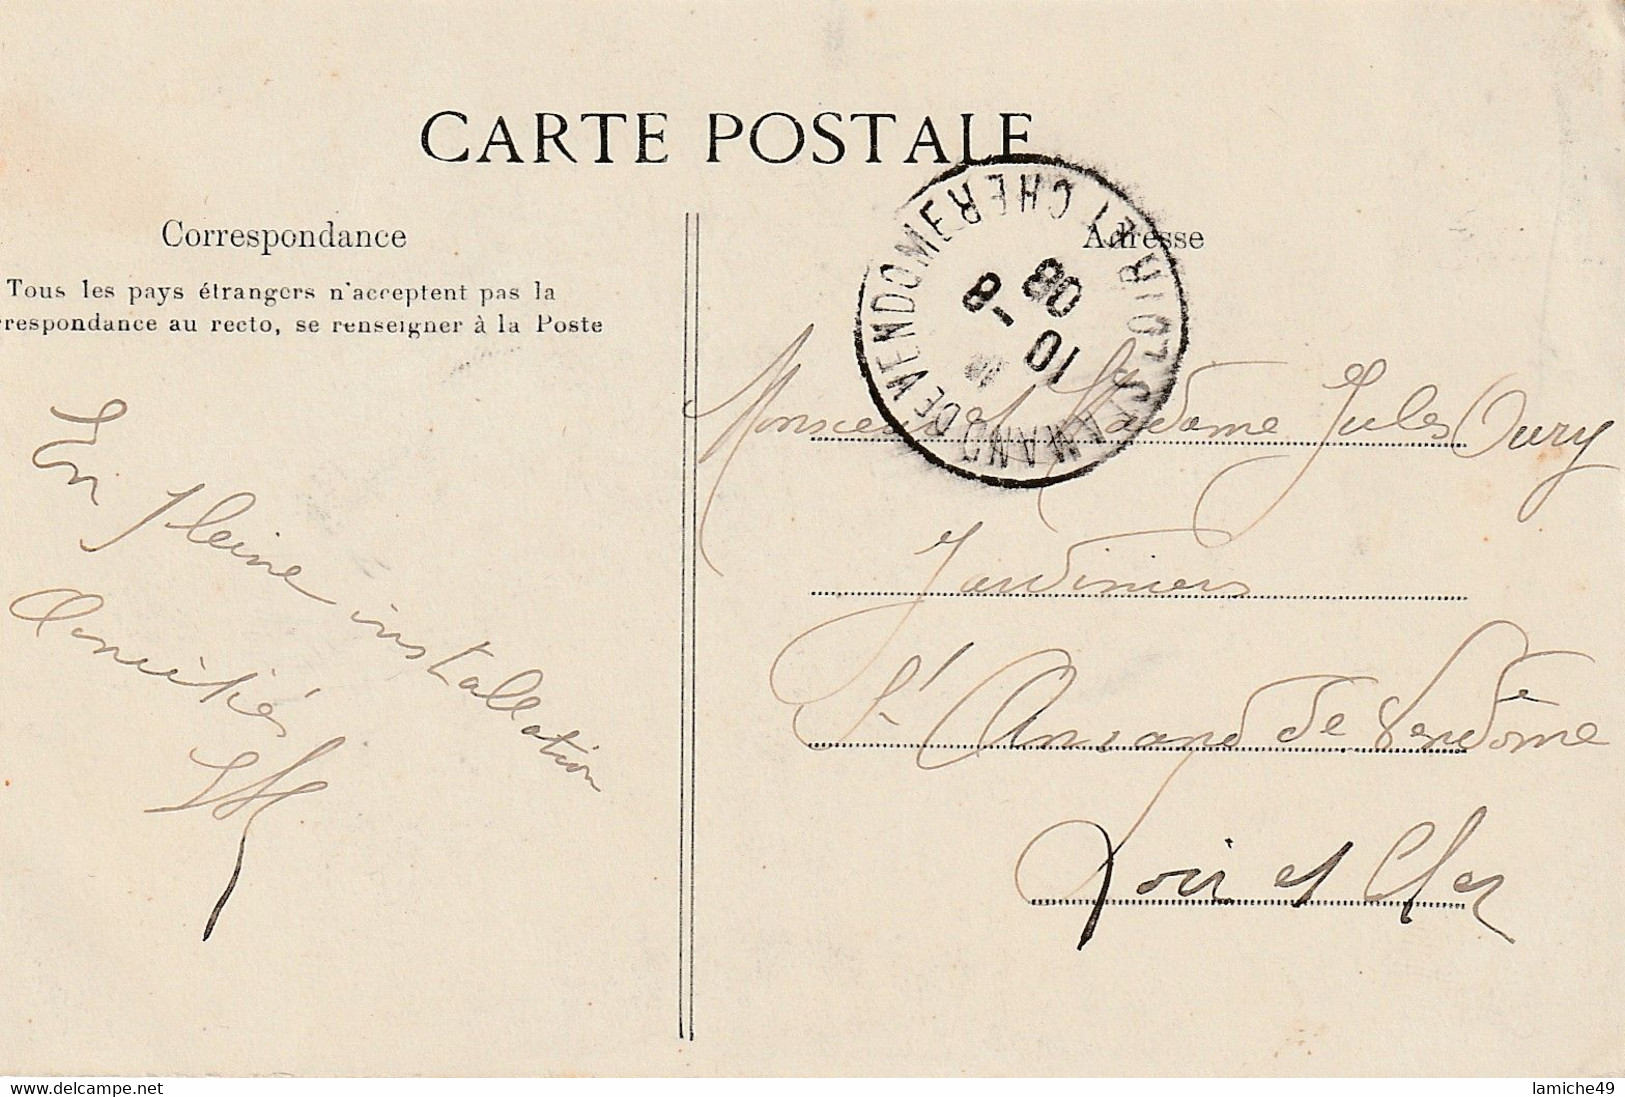 CARTE POSTALE
Correspondance
Tous les pays étrangers n'acceptent pas la
rrespondance au recto, se renseigner à la Poste
En pleine installation
Amitiés
Adresse
ST AMAND DE VENDOME
LOIR ET CHER
10 -8 08
Monsieur et Madame Jules Oury
Jardiniers
St Amand de Vendôme
Loir et Cher
www.delcampe.net
lamiche49